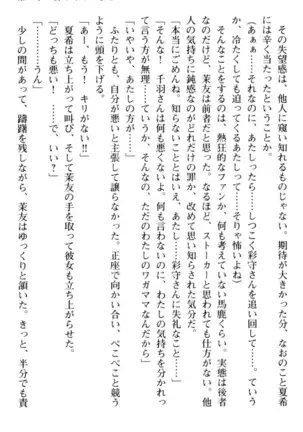 その失望感は、他人に窺い知れるものじゃない。期待が大きか
った分、なおのこと夏希
には辛く当たったということか。
「あぁぁ……それなのに、あたしったら……しつこく彩守さんを追い回して……。ていう
か、冷たくしても迫ってくるあたしって……そりゃ怖いよね」
そんなことをするのは、熱狂的なファンか、何も考えていない馬鹿くらい。実態は後者
なのだけど、茉友は前者だと思った。なるほど、ストーカーと思われても仕方がない。他
人の気持ちに鈍感なのがどれだけの罪か、改めて思い知らされた気分だ。
「本当にごめんね。知らないこととはいえ、あたし……彩守さんに失礼なこと……」
「そんな！ 千羽さんは何も悪くないよ。何も言わないのに、わたしの気持ちを分かれっ
て言う方が無理……ていうか、そんなの、ただのわたしのワガママなんだから」
「いやいや、あたしの方が……」
ふたりとも、自分が悪いと主張して譲らなかった。正座で向かい合い、ぺこぺこと競う
ように頭を下げる。
「あー、もう！ キリがない!!」
夏希は立ち上がって叫び、そして茉友の手を取って彼女も立ち上がらせた。
「どっちも悪い！ ……で、いい？」
「……うん」
少しの間があって、躊躇を残しながら、茉友はゆっくりと頷いた。きっと、半分でも責